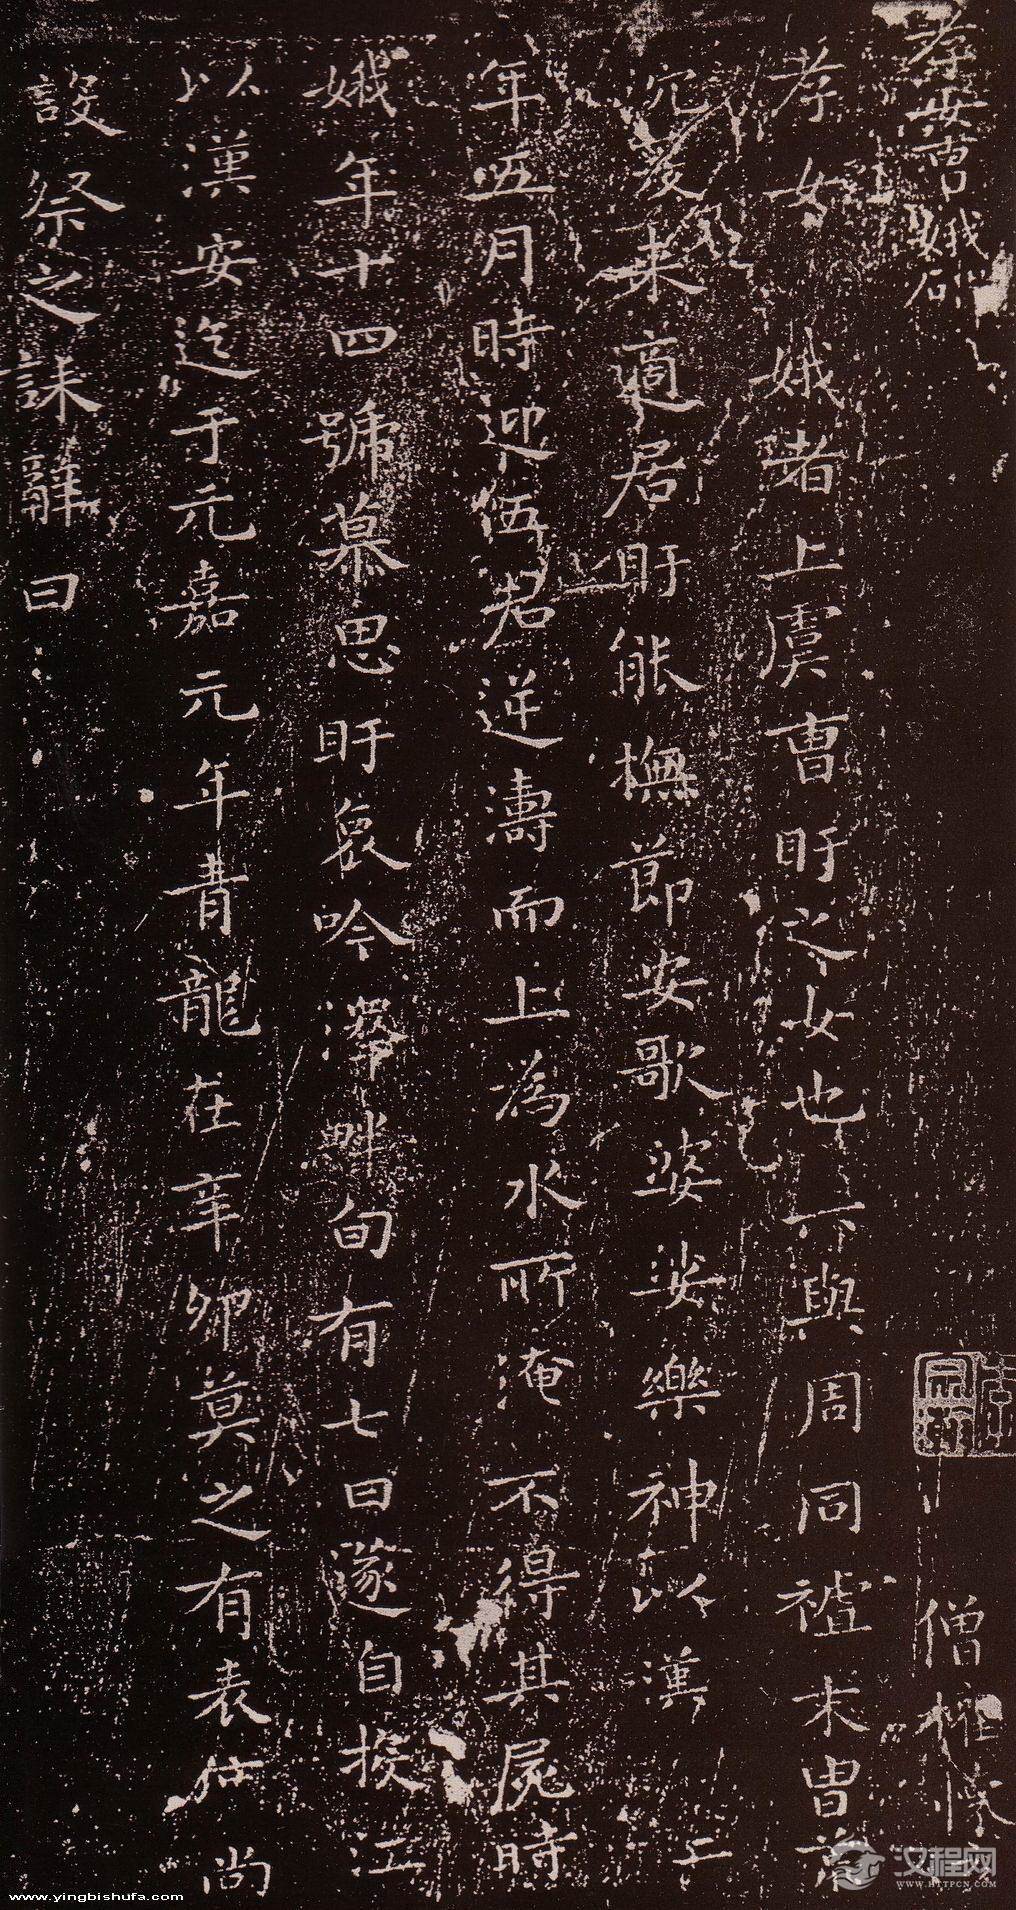 孝女曹娥碑
僧權
孝女娥者上虞曹盱之女也六與周同禋末胄
沉爰來適居盱能撫節安歌婆娑樂神以漢二
年五月時迎伍君逆濤而上為水所淹不得其屍時
娥年十四號慕思盱哀吟澤畔旬有七日遂自投江
以漢安迄于元嘉元年青龍在辛卯莫之有表伩尚
設祭之誄辭曰
汉程网
WWW.HTTPCN.COM
www.yingbishufa.com